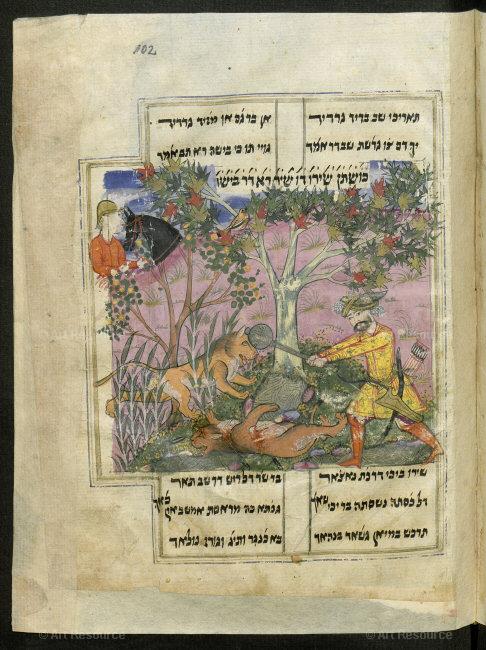 102
תאריכי שב בדיד גרדיד
אן בד גם אן מזיד גרדיד
יך דם צו גדשת שבדר אמד
גויי תו כי בישה רא תב אמד
כושתן שירו דו שיר רא דר בישה
שירו ביכי דרכת נאצאר
בי שד דר דוש דר שב תאר
דל כסתה נשסתה בד יכי
גפתא כה מראסת אמשב
תרכש במיאן גשאד בנהאד
בא כנגר ותיג וגורז
© Art Resource
© Art Resource